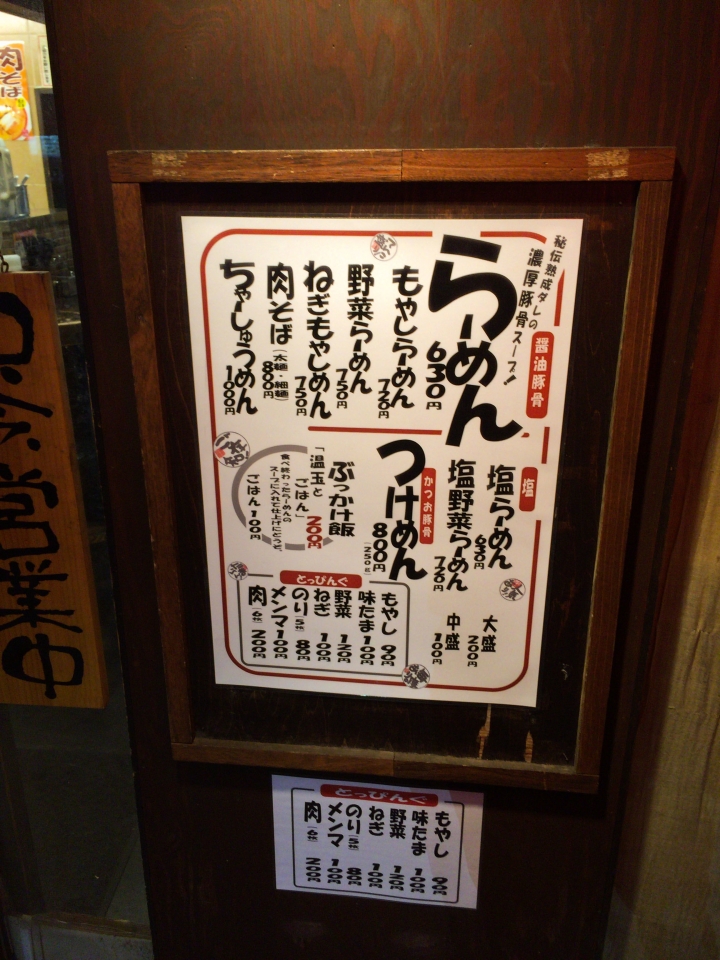 肉そば
只今営業中
秘伝熟成ダレの
濃厚豚骨スープ!
醤油豚骨
らーめん
630円
もやしらーめん
720円
野菜らーめん
750円
ねぎもやしめん
750円
肉そば(太麺・細麺)
800円
ちゃーしゅうめん
1000円
塩
塩らーめん
630円
塩野菜らーめん
720円
大盛
200円
中盛
100円
かつお豚骨
つけめん
800円
(250g)
ぶっかけ飯
「温玉と
ごはん」
200円
食べ終わったらーめんの
スープに入れて仕上げにどうぞ。
ごはん100円
とっぴんぐ
もやし 90円
味たま 100円
野菜 120円
ねぎ 100円
のり(5枚) 80円
メンマ 100円
肉(6枚) 200円
とっぴんぐ
もやし 90円
味たま 100円
野菜 120円
ねぎ 100円
のり(5枚) 80円
メンマ 100円
肉(6枚) 200円